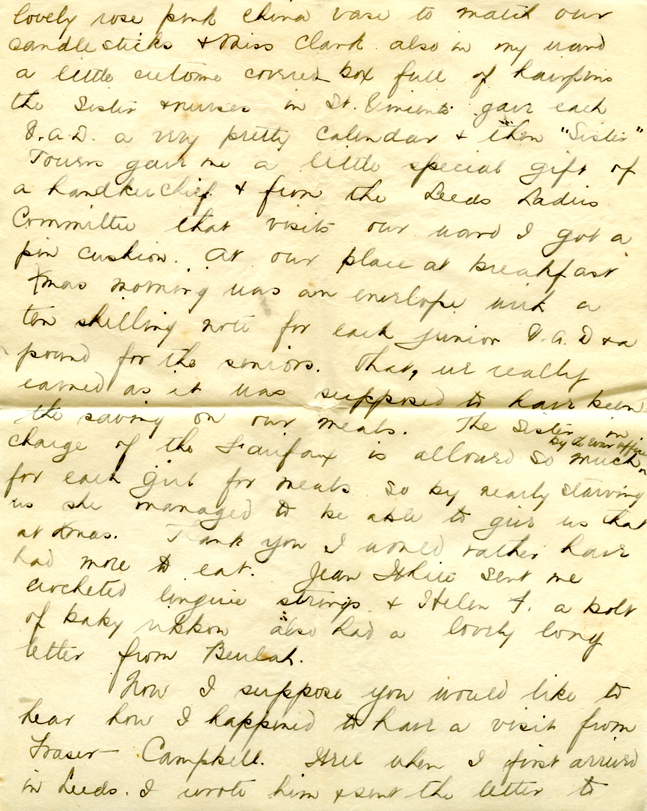 lovely rose pink china vase to match our
candle sticks & Miss Clark also in my ward
a little cretonne covered box full of hairpins
the Sister & nurses in St. Vincents gave each
V.A.D. a very pretty calendar & then "Sister"
gave me a little special gift of
a handkerchief & from the Leeds Ladies
Committee that visits our ward I got a
pin cushion. At our place at breakfast
Xmas morning was an envelope with a
ten shilling note for each junior V.A.D & a
pound for the seniors. That, we really
earned as it was supposed to have been
the saving on our meals. The Sister in
charge of the Fairfax is allowed so much by d. War Office
for each girl for meals so by nearly starving
us she managed to be able to give us that
at Xmas. Thank you I would rather have
had more to eat. Jean White sent me
crocheted lingerie strings & Helen F. a bolt
of baby ribbon also had a lovely long
letter from Beulah.
Now I suppose you would like to
hear how I happened to have a visit from
Fraser Campbell. Well when I first arrived
in Leeds. I wrote him & sent the letter to